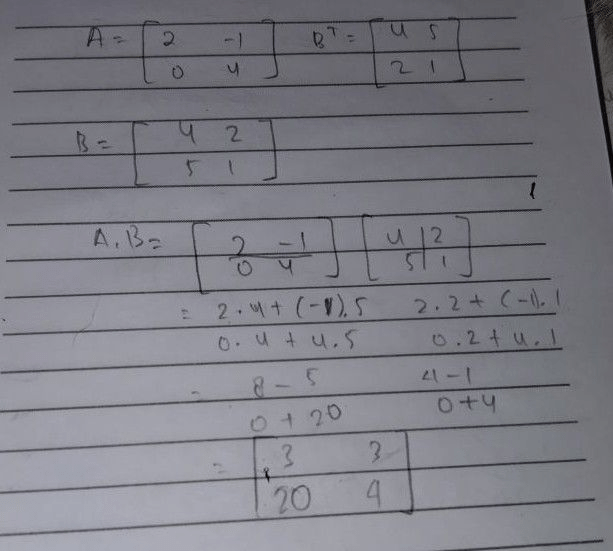 A = [ 2 -1 B^T = [ 4 5
0 4 ] 2 1 ]
B = [ 4 2
5 1 ]
A.B = [ 2 -1 ] [ 4 | 2
0 4 5 | 1 ]
= 2.4 + (-1).5 2.2 + (-1).1
0.4 + 4.5 0.2 + 4.1
= 8 - 5 4 - 1
0 + 20 0 + 4
= [ 3 3
20 4 ]